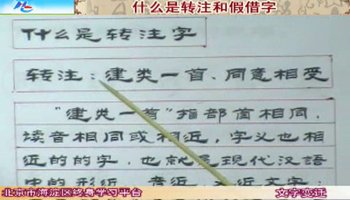 什么是转注和假借字
什么是转注字
转注：建类一首、同意相受
“建类一首”指部首相同，
读音相同或相近，字义也相
近的的字，也就是现代汉语
中的形近、音近、义近文字
北京市海淀区终身学习平台
文字变迁